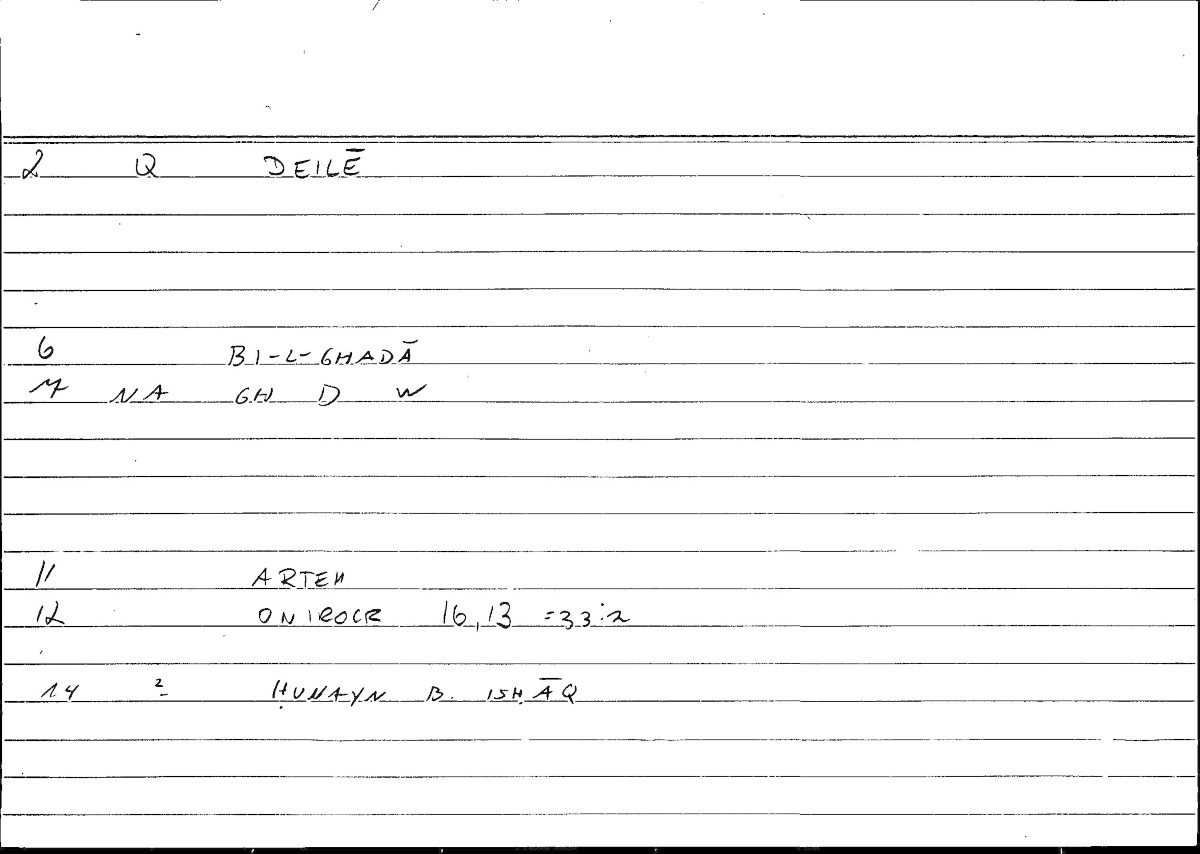 2 Q DEILĒ
6 BI-L-GHADĀ
7 NA GH D W
11 ARTEM
12 ONIROCR 16,13 =33:2
14 2 ḤUNAYN B. ISḤĀQ